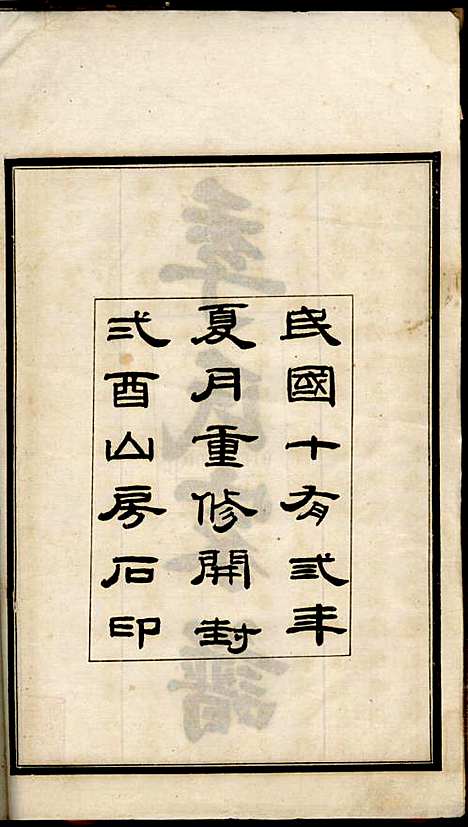 民國十有弍年
夏月重修開封
弍酉山房石印